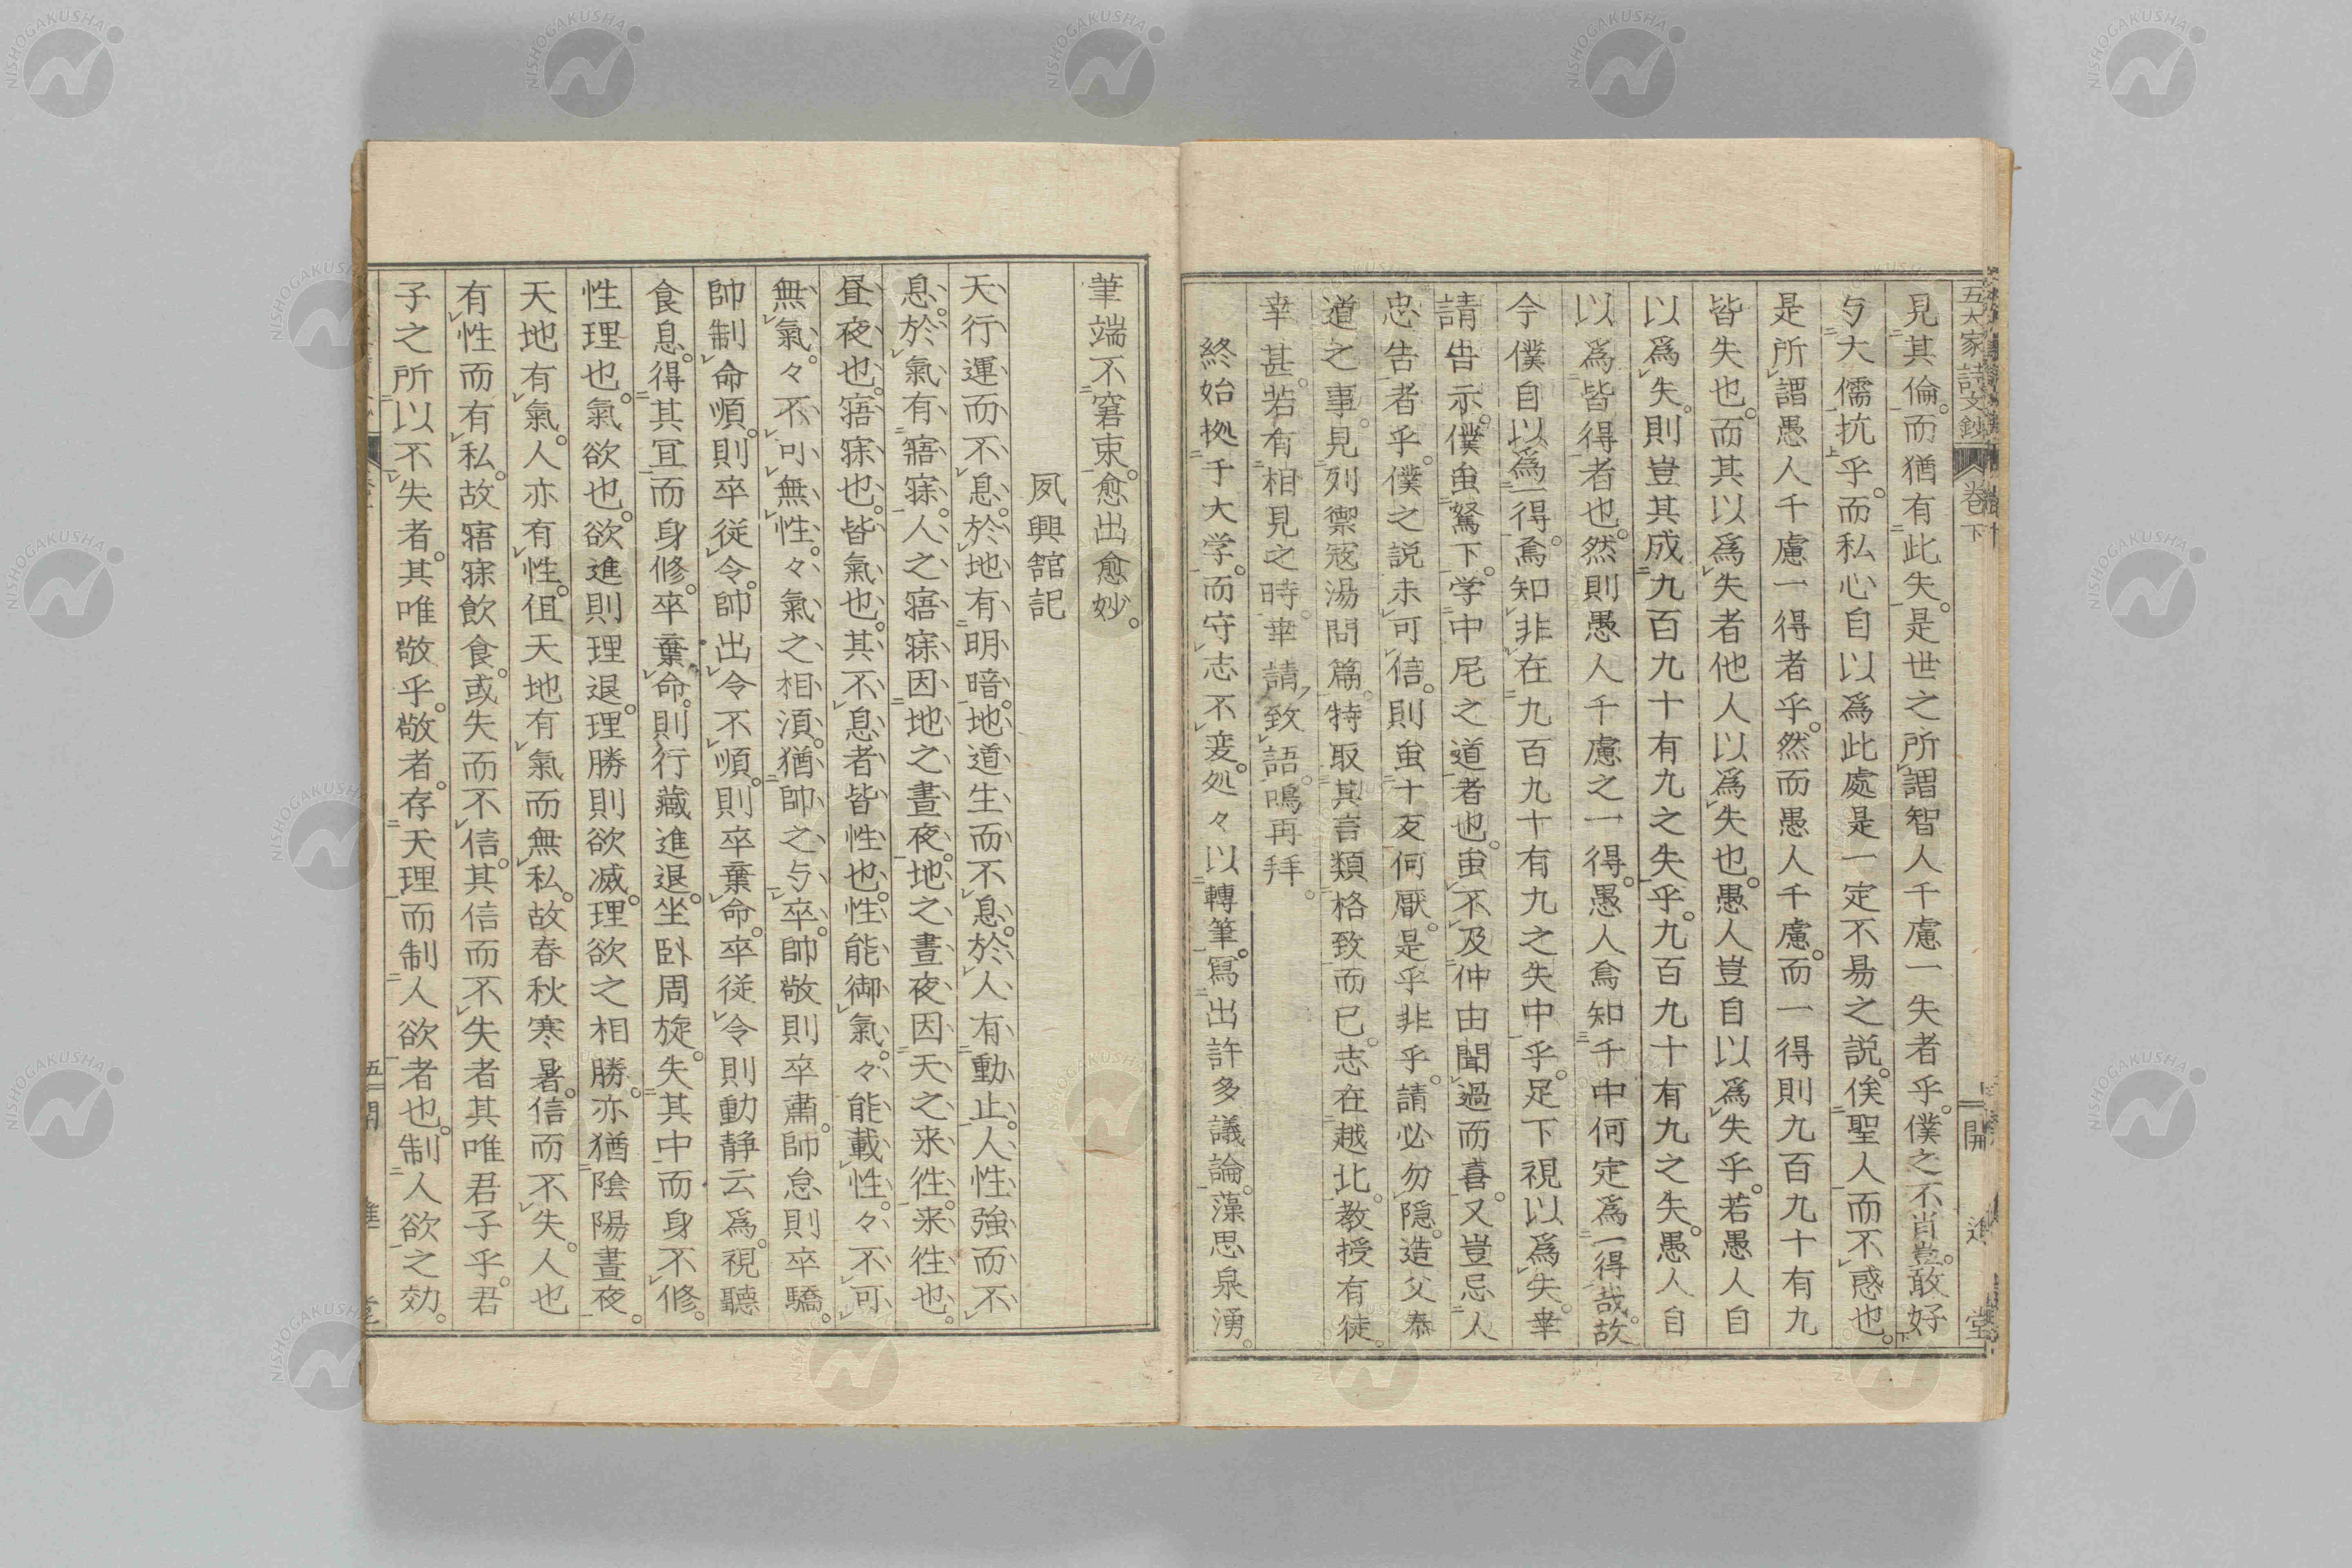 五大家詩文鈔 卷下
開進堂
見其倫。而猶有此失。是世之所謂智人千慮一失者乎。僕之不肖。豈敢好
与大儒抗乎。而私心自以爲此處是一定不易之説。俟聖人而不惑也。
是所謂愚人千慮一得者乎。然而愚人千慮。而一得則九百九十有九
皆失也。而其以爲失者他人以爲失也。愚人豈自以爲失乎。若愚人自
以爲失。則豈其成九百九十有九之失乎。九百九十有九之失。愚人自
以爲皆得者也。然則愚人千慮之一得。愚人焉知千中何定爲一得哉。故
今僕自以爲一得。焉知非在九百九十有九之失中乎。足下視以爲失。幸
請告示。僕虽駑下。学中尼之道者也。虽不及仲由聞過而喜。又豈忌人
忠告者乎。僕之説未可信。則虽十反何厭。是乎非乎。請必勿隠。造父泰
道之事。見列禦寇湯問篇。特取其言類格致而已。志在越北。教授有徒。
幸甚。若有相見之時。幸請致語。鳴再拜。
終始拠于大学。而守志不変。処々以轉筆。寫出許多議論。藻思泉湧。
筆端不窘束。愈出愈妙。
夙興舘記
天行運而不息。於地有明暗。地道生而不息。於人有動止。人性強而不
息。於氣有寤寐。人之寤寐。因地之晝夜。地之晝夜因天之来徃。来徃也。
昼夜也。寤寐也。皆氣也。其不息者皆性也。性能御氣。々能載性。々不可
無氣。々不可無性。々氣之相湏。猶帥之与卒。帥敬則卒肅。帥怠則卒驕。
帥制命順。則卒従令。帥出令不順。則卒棄命。卒従令則動静云爲。視聽
食息。得其冝而身修。卒棄命。則行藏進退。坐卧周旋。失其中而身不修。
性理也。氣欲也。欲進則理退。理勝則欲滅。理欲之相勝。亦猶陰陽晝夜。
天地有氣。人亦有性。但天地有氣而無私。故春秋寒暑。信而不失。人也
有性而有私。故寤寐飲食。或失而不信。其信而不失者其唯君子乎。君
子之所以不失者。其唯敬乎。敬者。存天理而制人欲者也。制人欲之効。